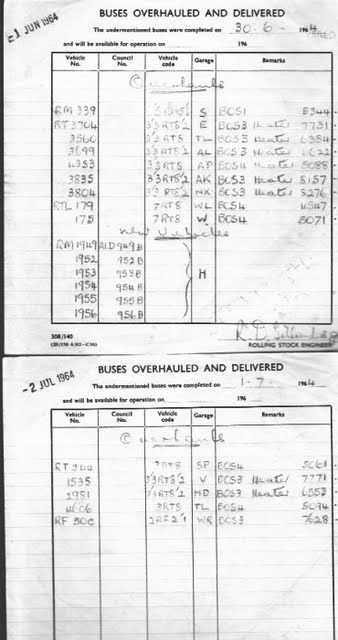 BUSES OVERHAULED AND DELIVERED
-1 JUN 1964
The undermentioned buses were completed on 30-6- 1964
and will be available for operation on 196
Vehicle No. Council No. Vehicle code Garage Remarks
Overhauls
RM 339 S BCS1 8344
RT 3704 3/3RT8/2 E BCS3 Heater 7731
3560 3/3RT8 TL BCS3 Heater 6384
3/3RT8/2 AL BCS3 Heater
4353 3/3RT8 AP BCS4 Heater 5088
3835 3/3RT8/2 AK BCS3 Heater 8157
3804 3/3RT8/2 NX BCS3 Heater 8276
RTL 179 7RT8 WL BCS4 4547
175 7RT8 W BCS4 5071
New Vehicles
RM 1949 ALD 949B
1952 952B
1953 953B H
1954 954B
1955 955B
1956 956B
308/140
ROLLING STOCK ENGINEER
BUSES OVERHAULED AND DELIVERED
-2 JUL 1964
The undermentioned buses were completed on 1-7- 1964
and will be available for operation on 196
Vehicle No. Council No. Vehicle code Garage Remarks
Overhauls
RT 3RT8 SP BCS4 5061
1535 3/3RT8/2 V BCS3 Heater 7771
1981 3/3RT8/2 HD BCS3 Heater 6553
4606 3RT8 TL BCS4 5094
RF 500 2RF2/1 WR BCS3 7628